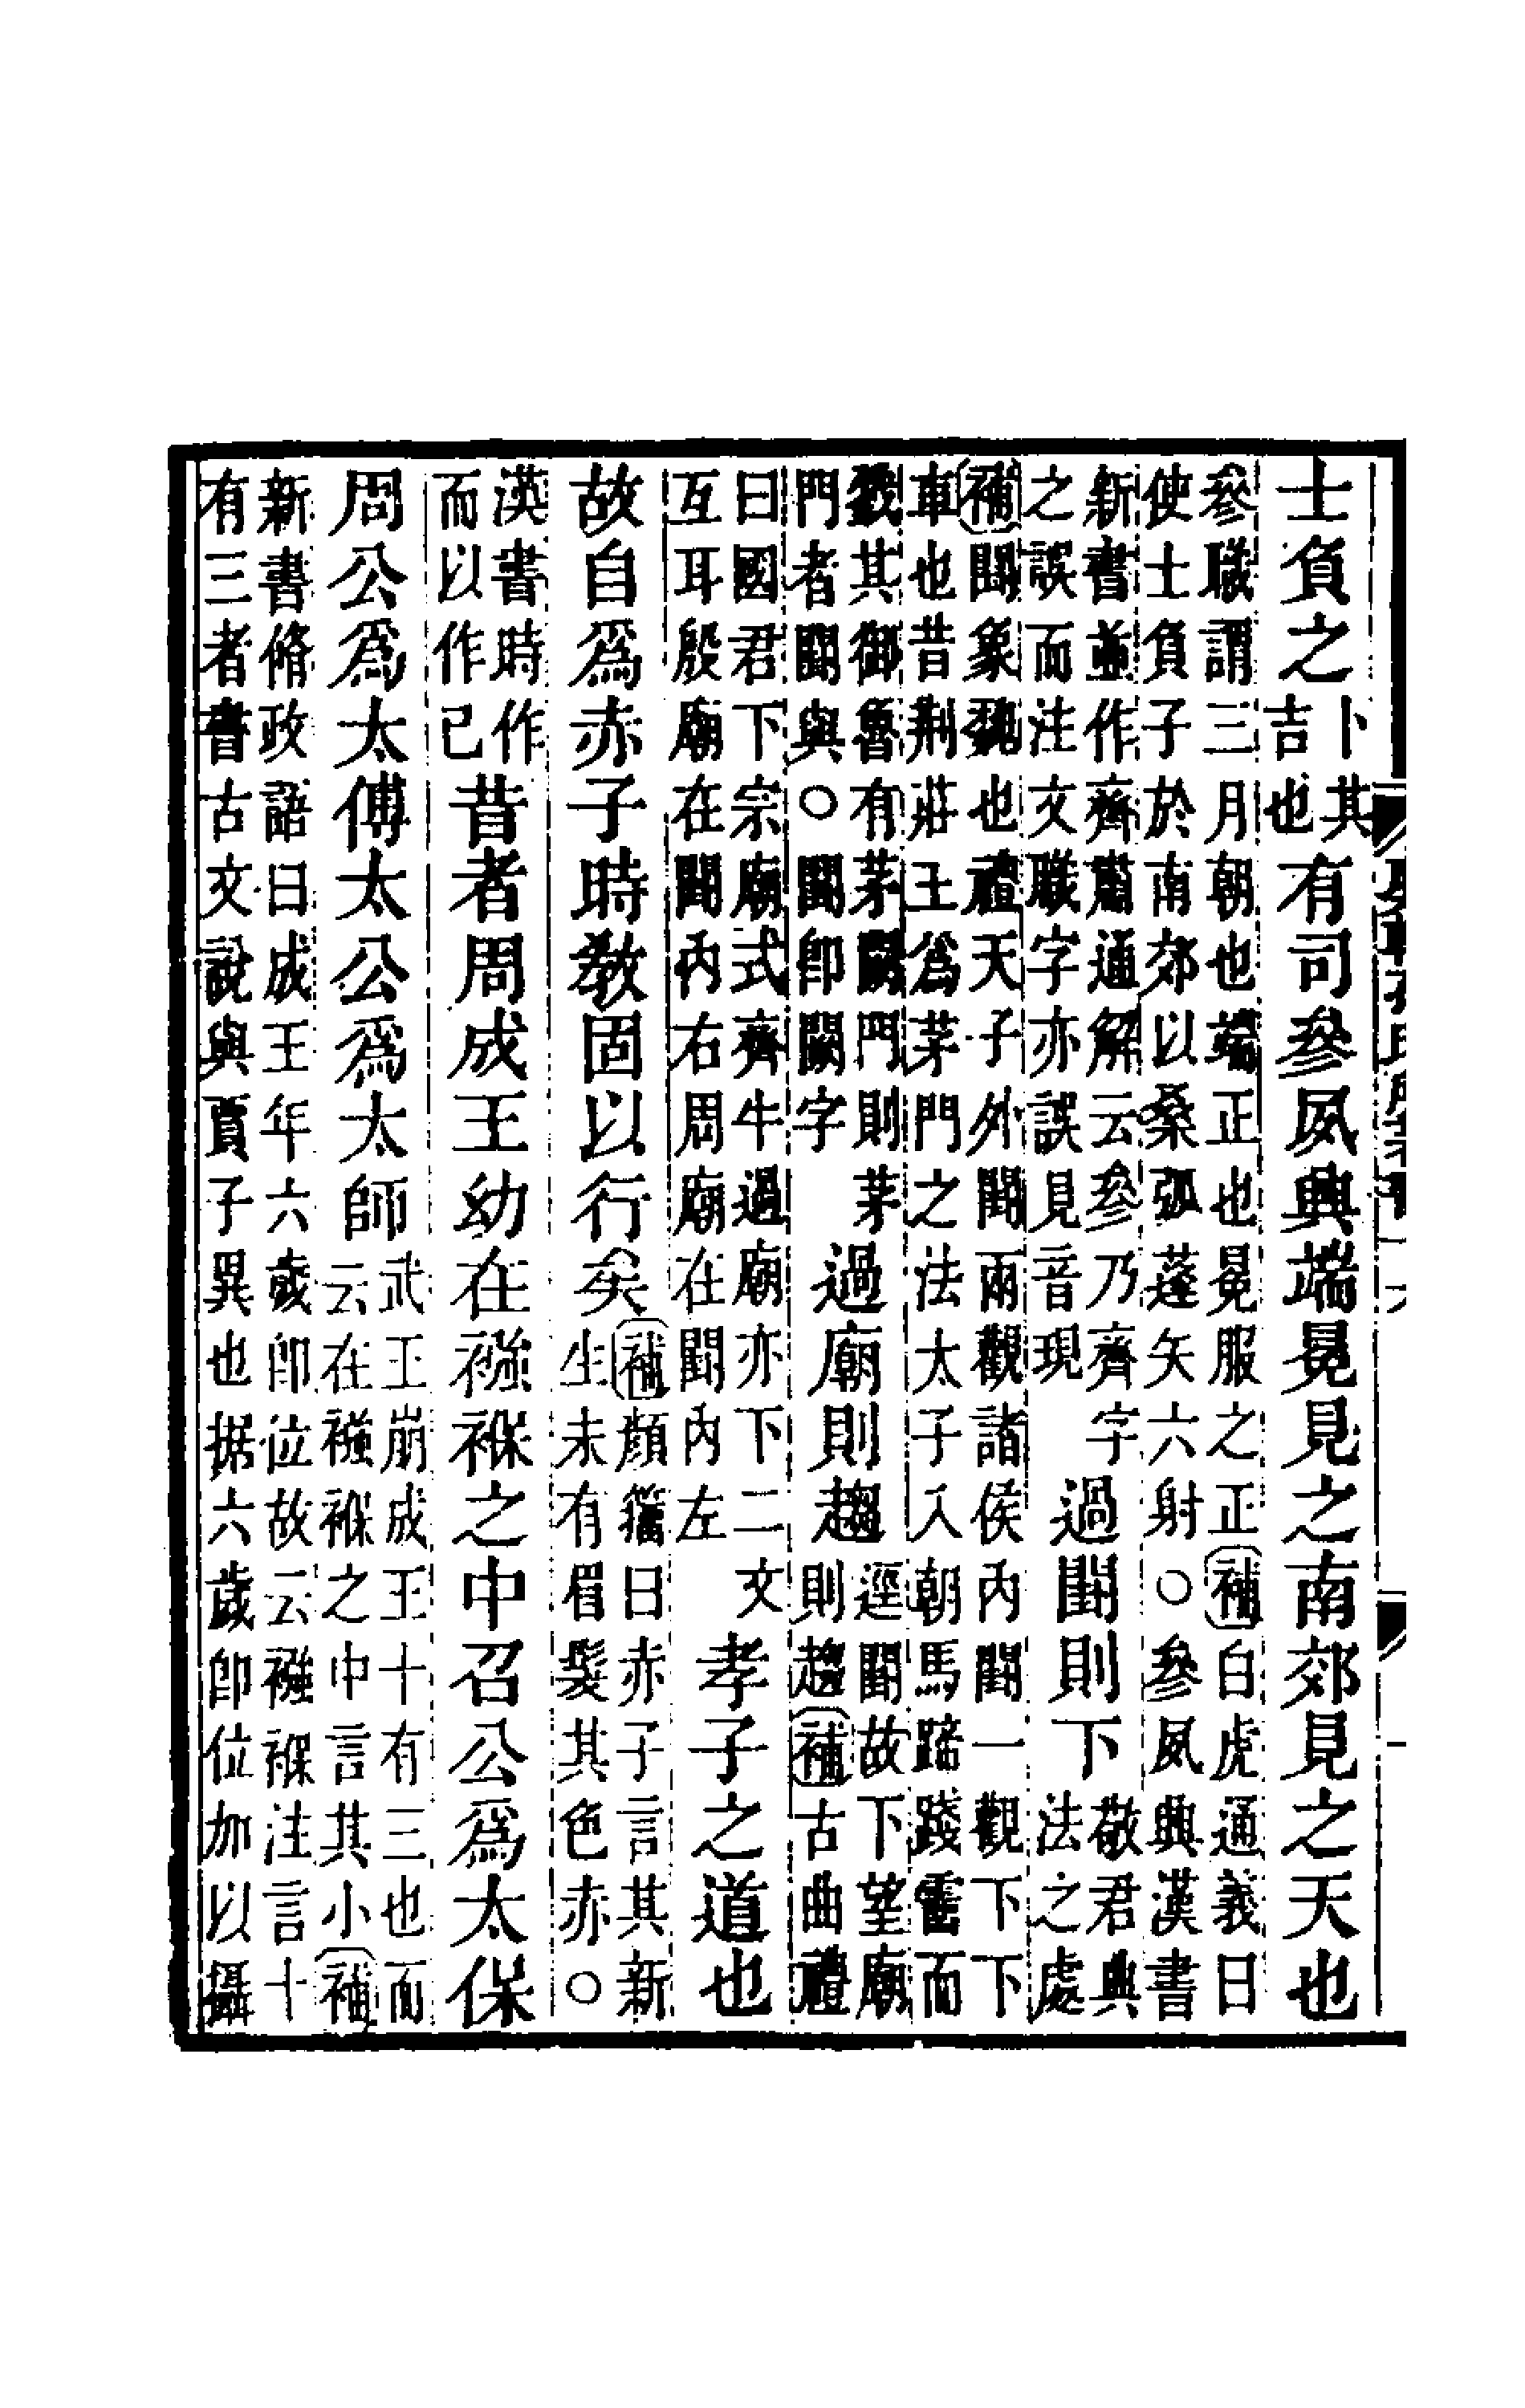 士負之卜其吉也有司參夙興端冕見之南郊見之天也
參職謂三月朝也端正也冕服之正補白虎通義曰
使士負子於南郊以桑弧蓬矢六射○參夙興漢書
新書並作齊肅通解云參乃齊字
之誤而注文職字亦誤見音現
過闕則下敬君典法之處
補闕象魏也禮天子外闕兩觀諸侯內闕一觀下下
車也昔荆莊王爲茅門之法太子入朝馬蹄踐霤而
戮其御魯有茅闕門則茅
門者闕與○闕卽闕字
過廟則趨逕闕故下望廟則趨補古曲禮
曰國君下宗廟式齊牛過廟亦下二文
互耳殷廟在闕內右周廟在闕內左
孝子之道也
故自爲赤子時敎固以行矣補顏籀曰赤子言其新生未有眉髮其色赤○
漢書時作而以作已昔者周成王幼在襁褓之中召公爲太保
周公爲太傅太公爲太師武王崩成王十有三也而云在襁褓之中言其小補
新書脩政語曰成王年六歲卽位故云襁褓注言十
有三者書古文說與賈子異也据六歲卽位加以攝